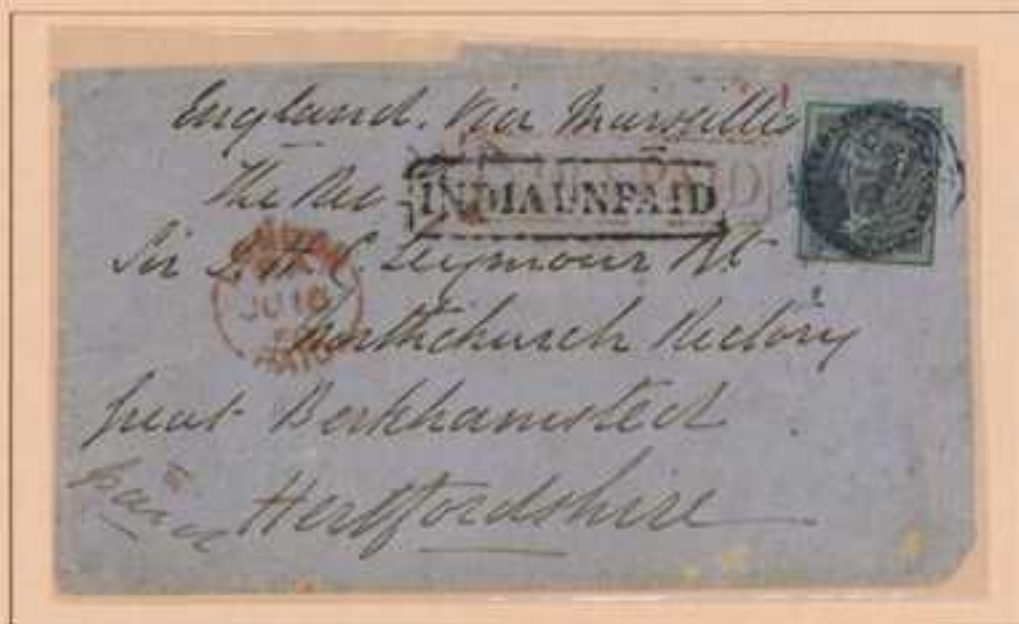 England. Via Marseilles
The Rev
INDIA UNPAID
PAID
Sir J. H. C. Seymour Bt
JU 16
Northchurch Rectory
Great Berkhamsted
Hertfordshire